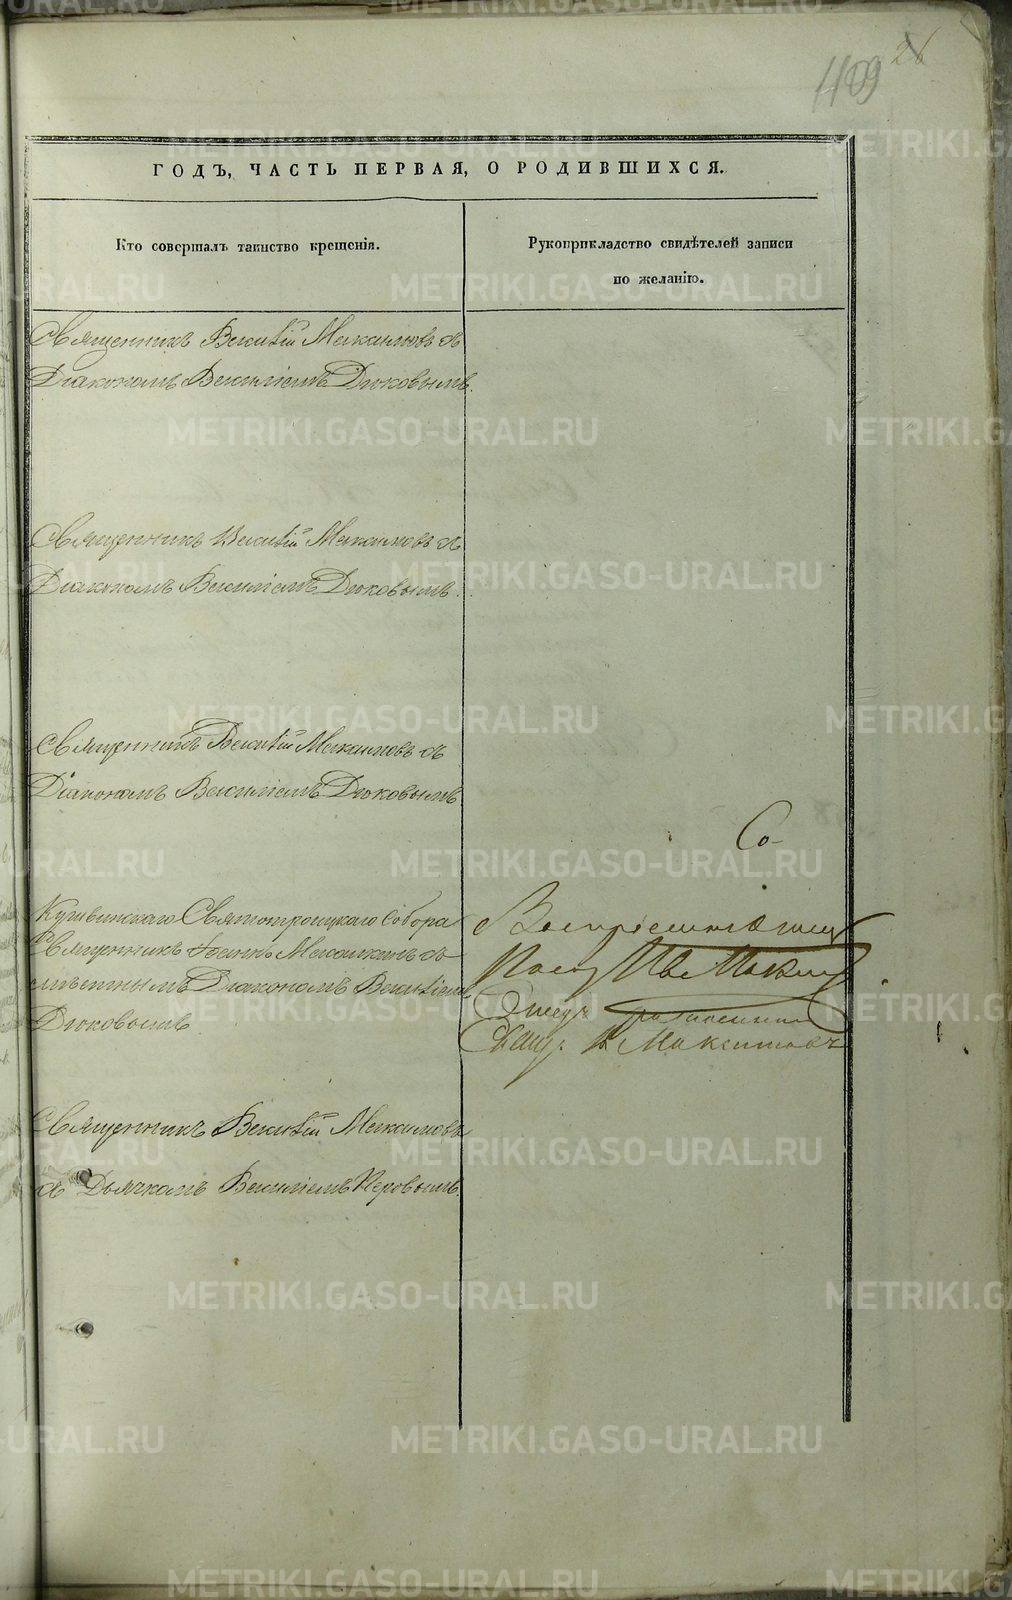 26
409
ГОДЪ, ЧАСТЬ ПЕРВАЯ, О РОДИВШИХСЯ.
Кто совершалъ таинство крещенія.
Рукоприкладство свидѣтелей записи
по желанію.
Священникъ Василій Максимовъ съ
Діакономъ Василіемъ Дюковымъ.
Священникъ Василій Максимовъ съ
Діакономъ Василіемъ Дюковымъ.
Священникъ Василій Максимовъ съ
Діакономъ Василіемъ Дюковымъ
Кушвинскаго Святотроицкаго Собора
Священникъ Іоаннъ съ
Діакономъ Василіемъ
Дюковымъ
Со-
Свящ. В Максимовъ
Священникъ Василій Максимовъ
съ Дьячкомъ Василіемъ
METRIKI.GASO-URAL.RU